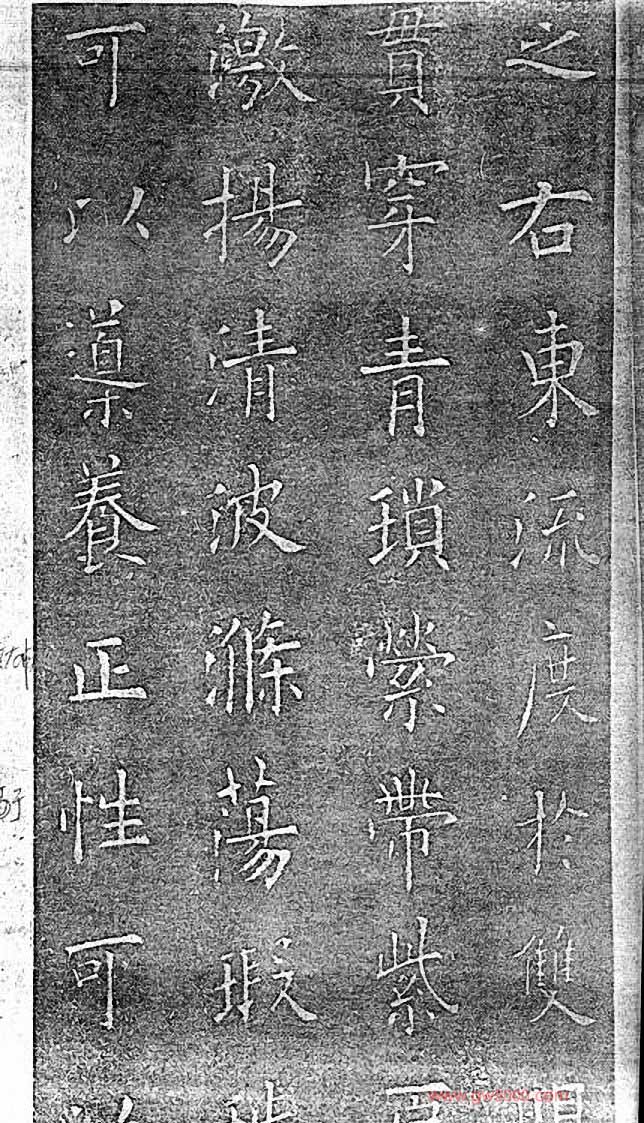 之右東流度於雙
貫穿青瑣縈帶紫
激揚清波滌蕩瑕
可以導養正性可以